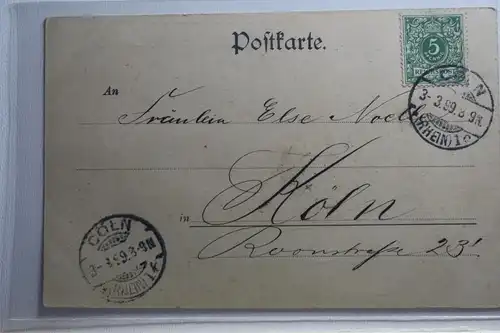 Postkarte.
5
CÖLN
3-3.99.8-9N
(RHEIN)1c
An
Fräulein Else Noel
Köln
in
Roonstraße 23¹
CÖLN
3-3.99.8-9N
(RHEIN)1